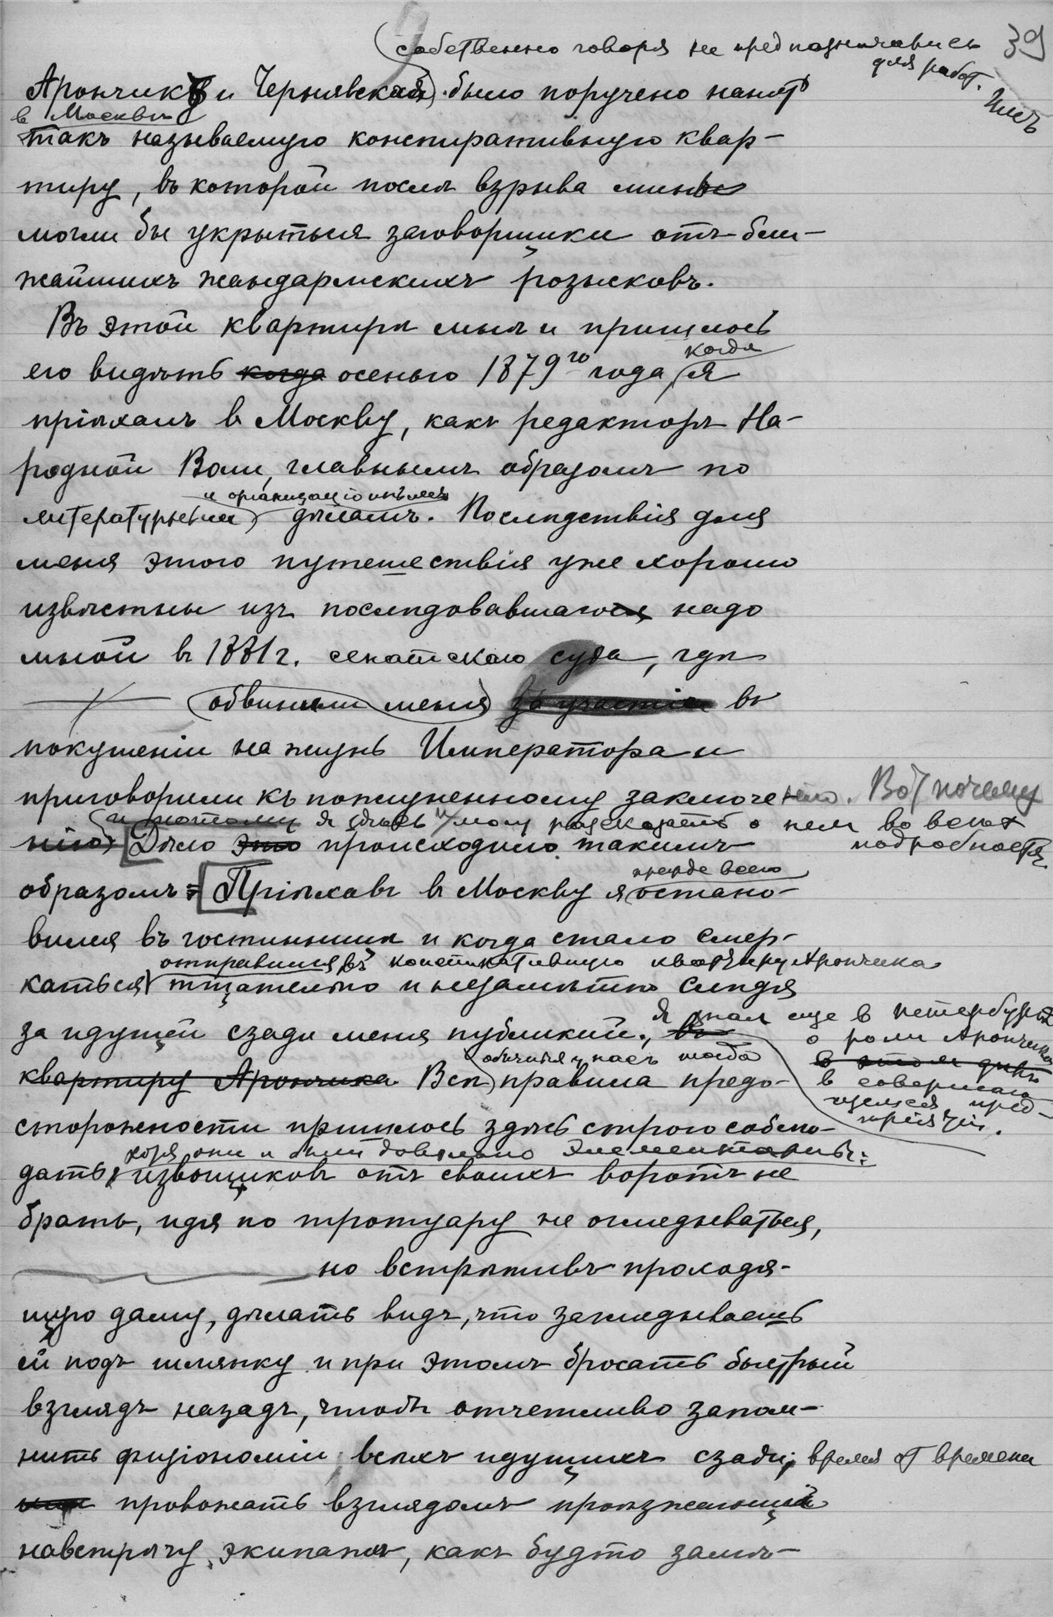 39
(собственно говоря не предназначались
для работ. Имъ
Арончикъ и Чернявская). было поручено нанять
в Москвѣ
такъ называемую конспиративную квар-
тиру, въ которой послѣ взрыва мины
могли бы укрыться заговорщики отъ бли-
жайшихъ жандармскихъ розысковъ.
Въ этой квартирѣ мнѣ и пришлось
его видѣть когда осенью 1879го года, когда я
пріѣхалъ в Москву, какъ редакторъ На-
родной Воли, главнымъ образомъ по
и организаціоннымъ
литературнымъ дѣламъ. Послѣдствія для
меня этого путешествія уже хорошо
извѣстны изъ послѣдовавшаго надо
мной в 1881 г. сенатскаго суда, гдѣ
обвиняли меня за участіе въ
покушеніи на жизнь Императора и
приговорили къ пожизненному заключенію. Вот почему
и потому я здѣсь и могу разсказать о нем во всѣх
подробностях.
нію) Дѣло это происходило такимъ
образомъ: Пріѣхавъ в Москву я прежде всего остано-
вился въ гостинницѣ и когда стало смер-
отправился въ конспиративную квартиру Арончика
каться тщательно и незамѣтно слѣдя
за идущей сзади меня публикой. Я знал еще в Петербургѣ
о роли Арончика
в этом дѣлѣ
в совершаю-
щемся пред-
пріятіи.
квартиру Арончика Всѣ обычныя у насъ тогда правила предо-
сторожности пришлось здѣсь строго соблю-
хотя они и были довольно элементарны:
дать: извощиковъ отъ своихъ воротъ не
брать, идя по тротуару не оглядываться,
но встрѣтивъ проходя-
щую даму, дѣлать видъ, что заглядываешь
ей подъ шляпку и при этомъ бросать быстрый
взглядъ назадъ, чтобъ отчетливо запом-
нить физіономіи всѣхъ идущихъ сзади; время от времени
провожать взглядомъ проѣзжающій
навстрѣчу экипажъ, какъ будто замѣ-